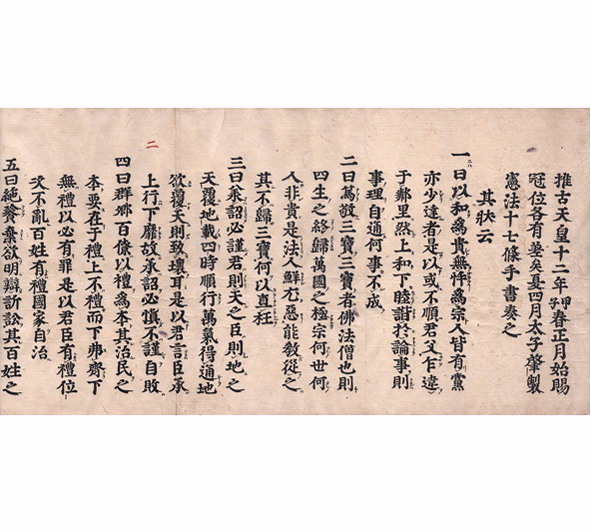 推古天皇十二年甲子春正月始賜
冠位各有差矣夏四月太子肇製
憲法十七條手書奏之
其狀云
一曰以和為貴無忤為宗人皆有黨
亦少達者是以或不順君父乍違
于鄰里然上和下睦諧於論事則
事理自通何事不成
二
二曰篤敬三寶三寶者佛法僧也則
四生之終歸萬國之極宗何世何
人非貴是法人鮮尤惡能教從之
其不歸三寶何以直枉
三曰承詔必謹君則天之臣則地之
天覆地載四時順行萬氣得通地
欲覆天則致壞耳是以君言臣承
上行下靡故承詔必慎不謹自敗
四曰群卿百僚以禮為本其治民之
本要在于禮上不禮而下非齊下
無禮以必有罪是以君臣有禮位
次不亂百姓有禮國家自治
五曰絕餮棄欲明辯訴訟其百姓之